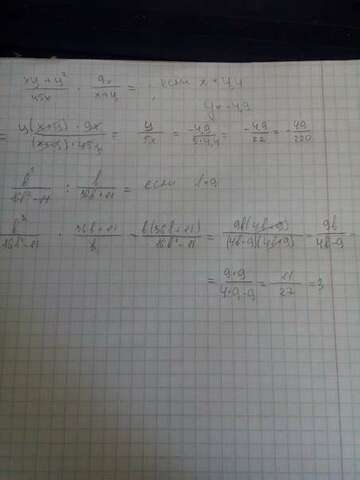 xy + y² / 45x · 9x / x+y = , если x = 4,4
y = -4,9
= y(x+y) · 9x / (x+y) · 45x = y / 5x = -4,9 / 5·4,4 = -4,9 / 22 = -49 / 220
b² / 16b²-81 : b / 36b+81 = если b=9
b² / 16b²-81 · 36b+81 / b = b(36b+81) / 16b²-81 = 9b(4b+9) / (4b-9)(4b+9) = 9b / 4b-9 =
= 9·9 / 4·9-9 = 81 / 27 = 3